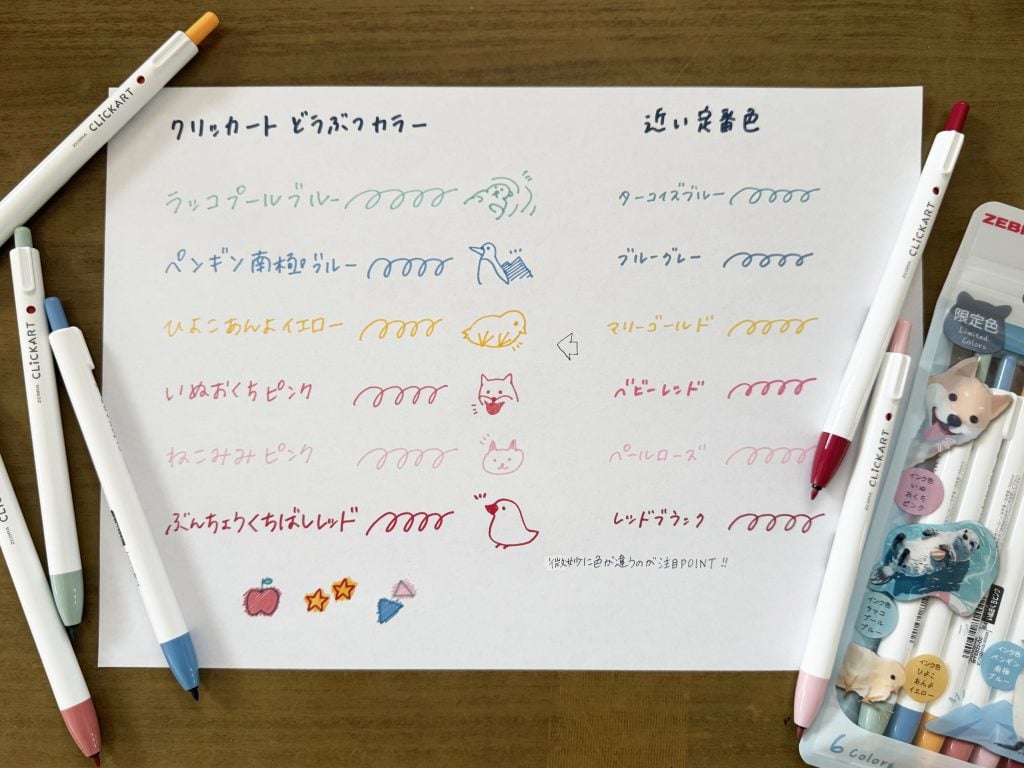 クリッカート どうぶつカラー
近い定番色
ラッコプールブルー
ターコイズブルー
ペンギン南極ブルー
ブルーグレー
ひよこあんよイエロー
マリーゴールド
いぬおくちピンク
ベビーレッド
ねこみみピンク
ペールローズ
ぶんちょうくちばしレッド
レッドブラック
微妙に色が違うのが注目POINT!!
ZEBRA CLiCKART
ZEBRA CLiCKART
ZEBRA CLiCKART
CLiCKART
CLiC
ZEBR
限定色
Limited
Colors
インク色
いぬ
おくち
ピンク
インク色
ラッコ
プール
ブルー
インク色
ひよこ
あんよ
イエロー
インク色
ペンギン
南極
ブルー
6 Colors